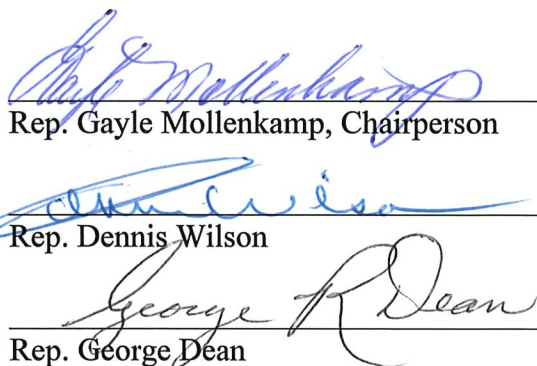 Gayle Mollenkamp
Rep. Gayle Mollenkamp, Chairperson
Dennis Wilson
Rep. Dennis Wilson
George R Dean
Rep. George Dean